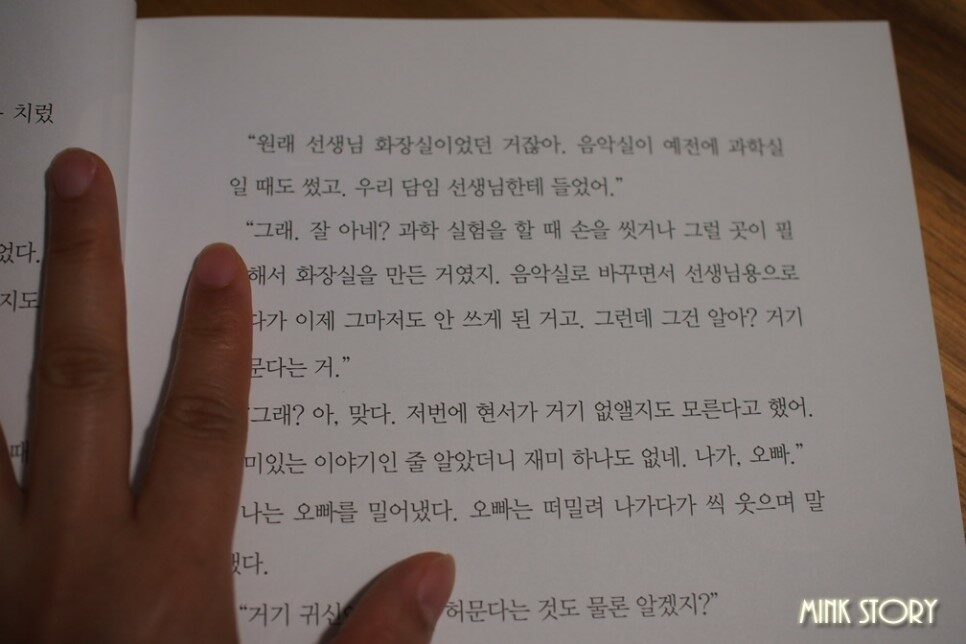 치렀
었다.
지도
때
“원래 선생님 화장실이었던 거잖아. 음악실이 예전에 과학실
일 때도 썼고. 우리 담임 선생님한테 들었어.”
“그래. 잘 아네? 과학 실험을 할 때 손을 씻거나 그럴 곳이 필
해서 화장실을 만든 거였지. 음악실로 바꾸면서 선생님용으로
다가 이제 그마저도 안 쓰게 된 거고. 그런데 그건 알아? 거기
문다는 거.”
그래? 아, 맞다. 저번에 현서가 거기 없앨지도 모른다고 했어.
미있는 이야기인 줄 알았더니 재미 하나도 없네. 나가, 오빠.”
나는 오빠를 밀어냈다. 오빠는 떠밀려 나가다가 씩 웃으며 말
했다.
“거기 귀신 허문다는 것도 물론 알겠지?”
MINK STORY